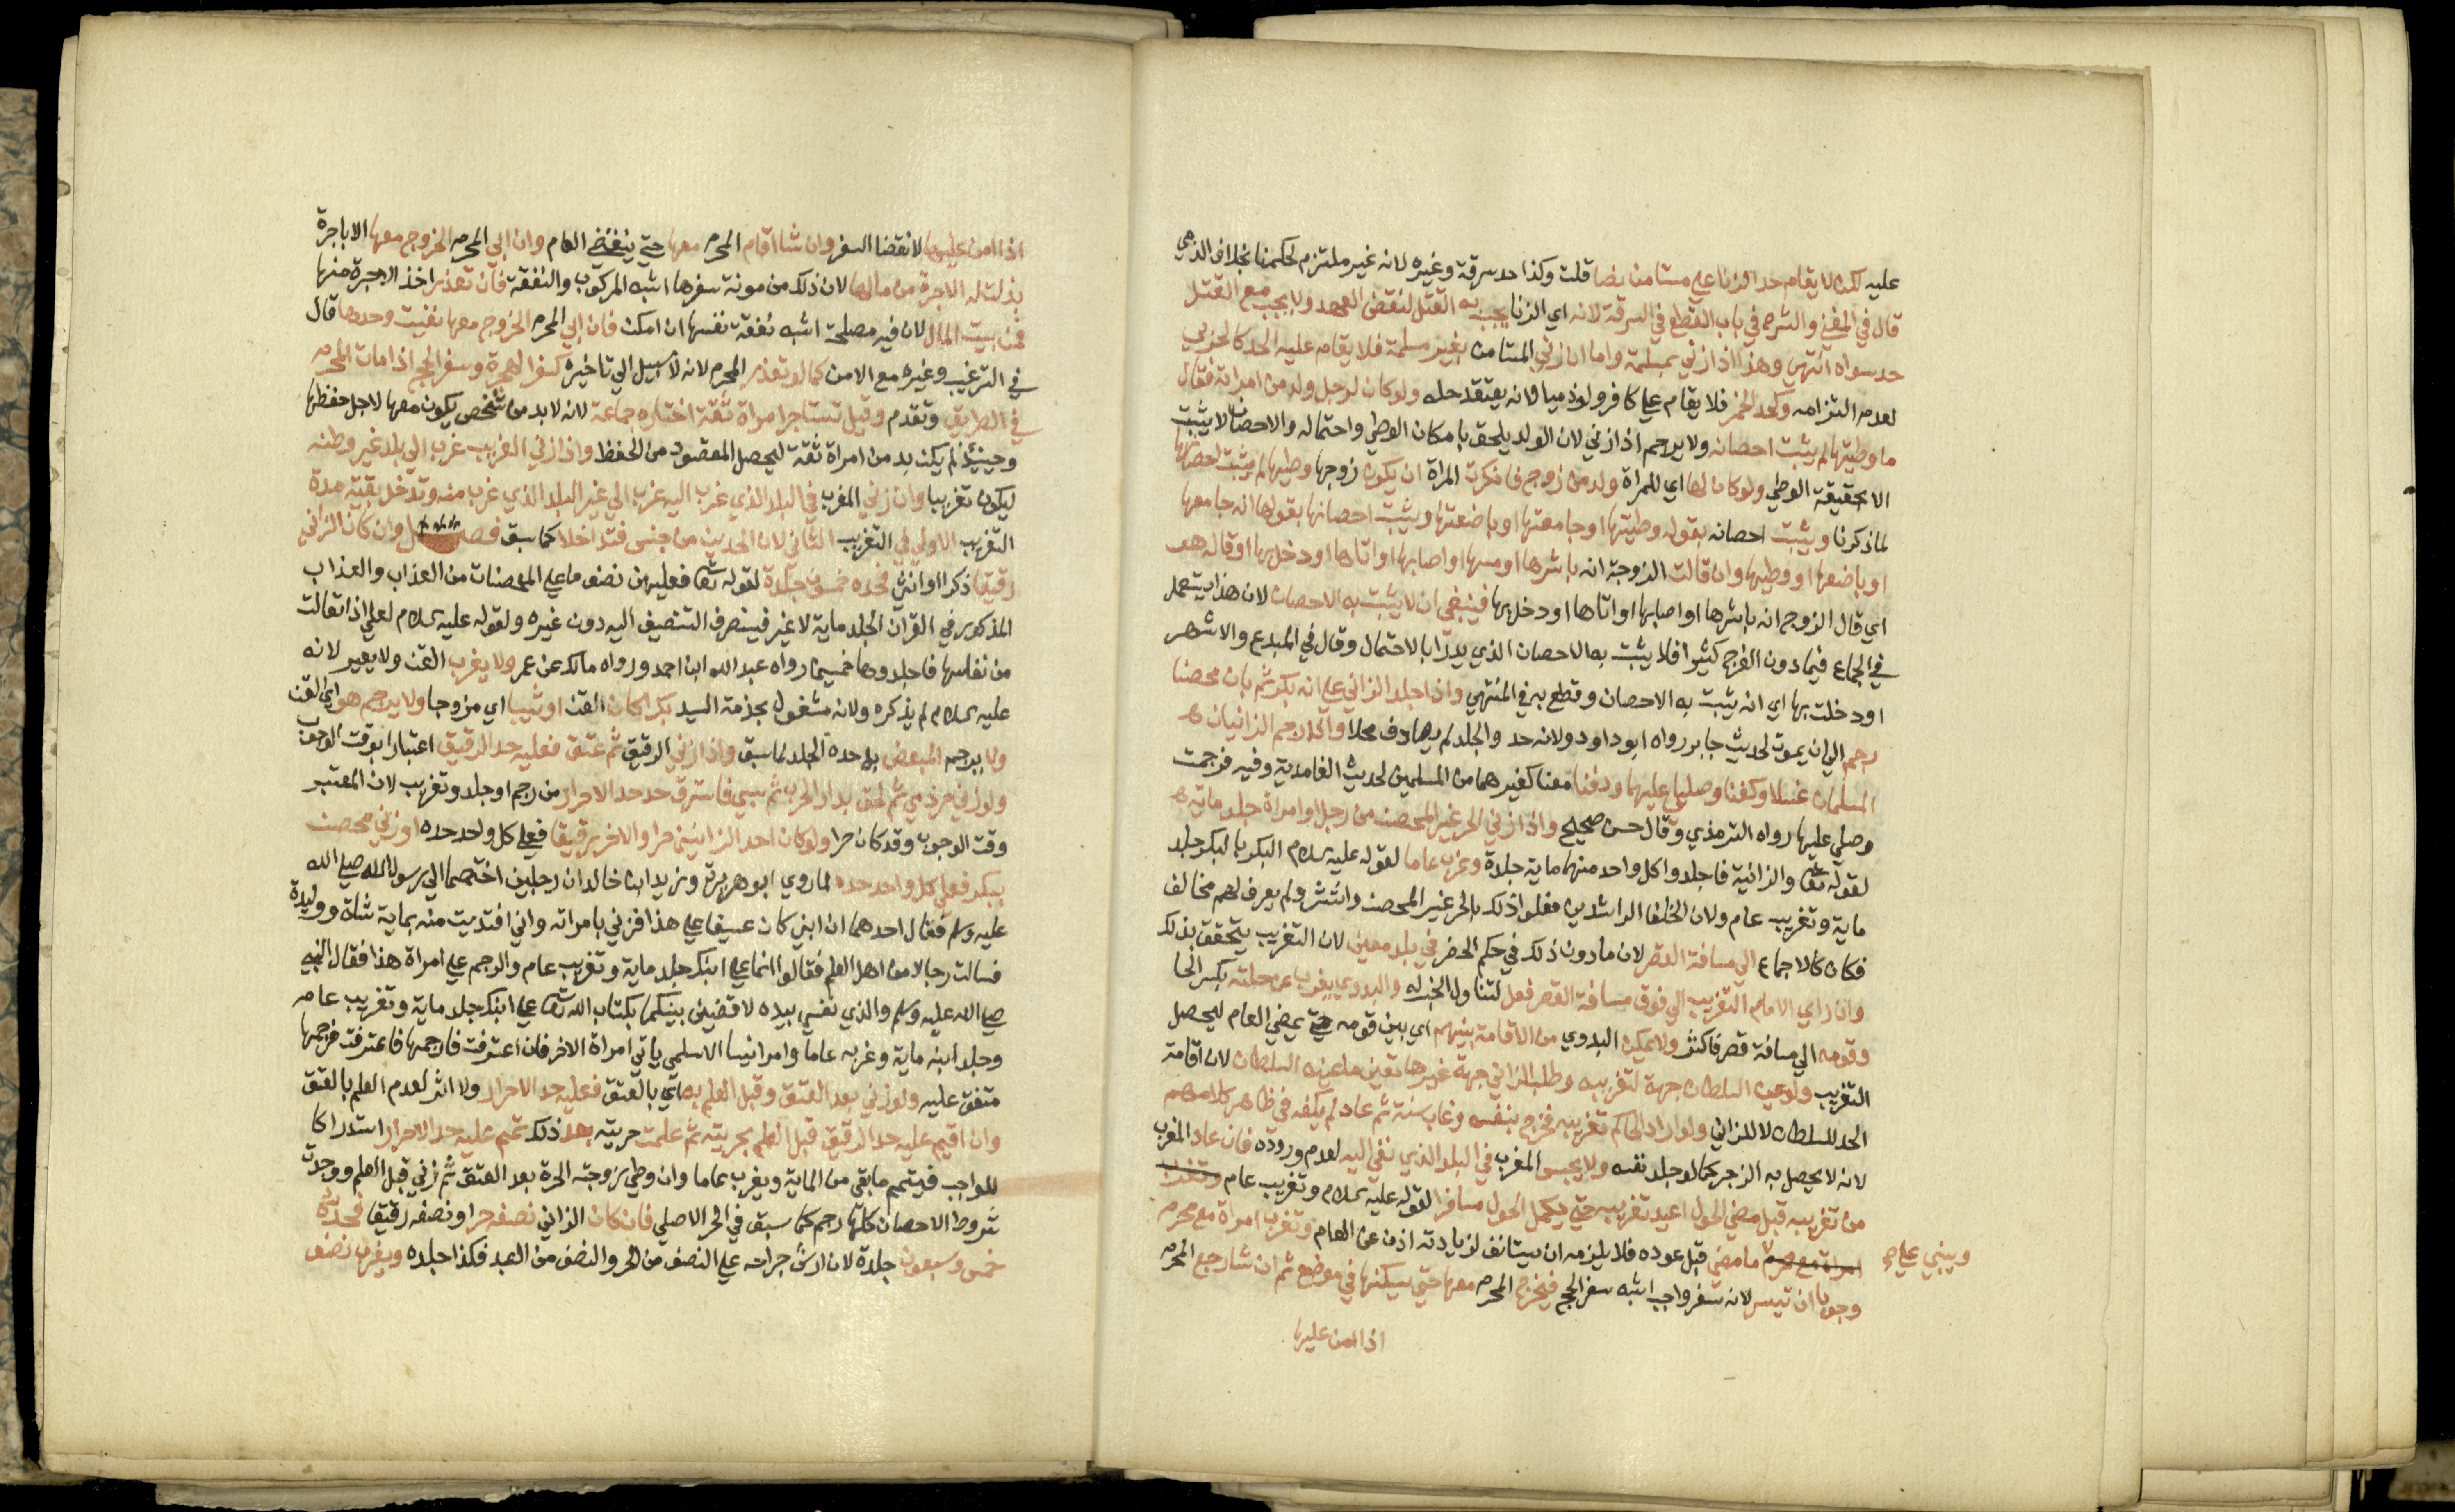 عليه لكن لا يقام حد الزنا علي مستامن نصا قلت وكذا حد سرقة وغيره لانه غير ملتزم لحكمنا بخلاف الذمي
قال في المغني والشرح في باب القطع في السرقة لانه اي الزنا يجب به القتل لنقض العهد ولا يجب مع القتل
حد سواه انتهي وهذا اذا زني بمسلمة واما ان زني المستامن بغير مسلمة فلا يقام عليه الحد كالحربي
لعدم التزامه وكحد الخمر فلا يقام علي كافر ولو ذميا لانه يعتقد حله ولو كان لرجل ولد من امراته فقال
ما وطيتها لم يثبت احصانه ولا يرجم اذا زني لان الولد يلحق بامكان الوطي واحتماله والاحصان لا يثبت
الا بحقيقة الوطي ولو كان لها اي للمراة ولد من زوج فانكرت المراة ان يكون زوجها وطيها لم يثبت احصانها
لما ذكرنا ويثبت احصانه بقوله وطيتها او جامعتها او باضعتها ويثبت احصانها بقولها انه جامعها
او باضعها او وطيها وان قالت الزوجة انه باشرها او مسها او اصابها او اتاها او دخل بها او قاله هو
اي قال الزوج انه باشرها او اصابها او اتاها او دخل بها فينبغي ان لا يثبت به الاحصان لان هذا يستعمل
في الجماع فيما دون الفرج كثيرا فلا يثبت به الاحصان الذي يدرا بالاحتمال وقال في المبدع والاشهر
او دخلت بها اي انه يثبت به الاحصان وقطع به في المنتهي واذا جلد الزاني علي انه بكر ثم بان محصنا
رجم الي ان يموت لحديث جابر رواه ابو داود ولانه حد والجلد لم يصادف محلا واذا رجم الزانيان
المسلمان غسلا وكفنا وصلي عليهما ودفنا معنا كغيرهما من المسلمين لحديث الغامدية وفيه فرجمت
وصلي عليها رواه الترمذي وقال حسن صحيح واذا زني الحر غير المحصن من رجل او امراة جلد ماية
لقوله تعا والزانية فاجلدوا كل واحد منهما ماية جلدة وغرب عاما لقوله عليه السلام البكر بالبكر جلد
ماية وتغريب عام ولان الخلفا الراشدين فعلوا ذلك بالحر غير المحصن وانتشر ولم يعرف لهم مخالف
فكان كالاجماع الي مسافة القصر لان ما دون ذلك في حكم الحضر في بلد معين لان التغريب يتحقق بذلك
وان راي الامام التغريب الي فوق مسافة القصر فعل لتناول الخبر له والبدوي يغرب عن حلته بكسر الحا
وقومه الي مسافة قصر فاكثر ولا يمكن البدوي من الاقامة بينهم اي بين قومه حتي يمضي العام ليحصل
التغريب ولو عين السلطان جهة لتغريبه وطلب الزاني جهة غيرها تعين ما عينه السلطان لان اقامة
الحد للسلطان لا للزاني ولو اراد الحاكم تغريبه فخرج بنفسه وغاب سنة ثم عاد لم يكفه في ظاهر كلامهم
لانه لا يحصل به الزجر كما لو جلد نفسه ولا يحبس المغرب في البلد الذي نفي اليه لعدم وروده فان عاد المغرب
من تغريبه قبل مضي الحول اعيد تغريبه حتي يكمل الحول مسافرا لقوله عليه السلام وتغريب عام وتغرب
امراة مع محرم ما مضي قبل عوده فلا يلزمه ان يستانف لزيادته اذن عن العام وتغرب امراة مع محرم
ويبني علي
وجوبا ان تيسر لانه سفر واجب اشبه سفر الحج فيخرج المحرم معها حتي يسكنها في موضع ثم ان شا رجع المحرم
اذا امن عليها
اذا امن عليها لانقضا السفر وان شا اقام المحرم معها حتي ينقضي العام وان ابي المحرم الخروج معها الا باجرة
بذلت له الاجرة من مالها لان ذلك من مونة سفرها اشبه المركوب والنفقة فان تعذر اخذ الاجرة منها
فمن بيت المال لان فيه مصلحة اشبه نفقة نفسها ان امكن فان ابي المحرم الخروج معها نفيت وحدها قال
في الترغيب وغيره مع الامن كما لو تعذر المحرم لانه لا سبيل الي تاخيره كسفر الهجرة وسفر الحج اذا مات المحرم
في الطريق وتقدم وقيل تستاجر امراة ثقة اختاره جماعة لانه لا بد من شخص يكون معها لاجل حفظها
وحينئذ لم يكن بد من امراة ثقة ليحصل المقصود من الحفظ واذا زني الغريب غرب الي بلد غير وطنه
ليكون تغريبا وان زني المغرب في البلد الذي غرب اليه غرب الي غير البلد الذي غرب منه وتدخل بقية مدة
التغريب الاول في التغريب الثاني لان الحدين من جنس فتداخلا كما سبق فصل وان كان الزاني
رقيقا ذكرا او انثي فحده خمسون جلدة لقوله تعا فعليهن نصف ما علي المحصنات من العذاب والعذاب
المذكور في القران الجلد ماية لا غير فينصرف التنصيف اليه دون غيره ولقوله عليه السلام لعلي اذا تعالت
من نفاسها فاجلدوها خمسين رواه عبد الله ابن احمد ورواه مالك عن عمر ولا يغرب القن ولا يعير لانه
عليه السلام لم يذكره ولانه مشغول بخدمة السيد بكرا كان القن او ثيبا اي مزوجا ولا يرجم هو اي القن
ولا يرجم المبعض بل حده الجلد لما سبق واذا زني الرقيق ثم عتق فعليه حد الرقيق اعتبارا بوقت الوجوب
ولو زني حر ذمي ثم لحق بدار الحرب ثم سبي فاسترق حد حد الاحرار من رجم او جلد وتغريب لان المعتبر
وقت الوجوب وقد كان حرا ولو كان احد الزانيين حرا والاخر رقيقا فعلي كل واحد حده او زني محصن
ببكر فعلي كل واحد حده لما روي ابو هريرة وزيد ابن خالد ان رجلين اختصما الي رسول الله صلي الله
عليه وسلم فقال احدهما ان ابني كان عسيفا علي هذا فزني بامراته واني افتديت منه بماية شاة ووليدة
فسالت رجالا من اهل العلم فقالوا انما علي ابنك جلد ماية وتغريب عام والرجم علي امراة هذا فقال النبي
صلي الله عليه وسلم والذي نفسي بيده لاقضين بينكما بكتاب الله تعا علي ابنك جلد ماية وتغريب عام
وجلد ابنه ماية وغربه عاما وامر انيسا الاسلمي ياتي امراة الاخر فان اعترفت فارجمها فاعترفت فرجمها
متفق عليه ولو زني بعد العتق وقبل العلم به اي بالعتق فعليه حد الاحرار ولا اثر لعدم العلم بالعتق
وان اقيم عليه حد الرقيق قبل العلم بحريته ثم علمت حريته بعد ذلك تمم عليه حد الاحرار استدراكا
للواجب فيتمم ما بقي من الماية ويغرب عاما وان وطي زوجته الحرة بعد العتق ثم زني قبل العلم ووجدت
شروط الاحصان كلها رجم كما سبق في الحر الاصلي فان كان الزاني نصفه حرا ونصفه رقيقا فحده
خمس وسبعون جلدة لان ارش جراحه علي النصف من الحر والنصف من العبد فكذا جلده ويغرب نصف